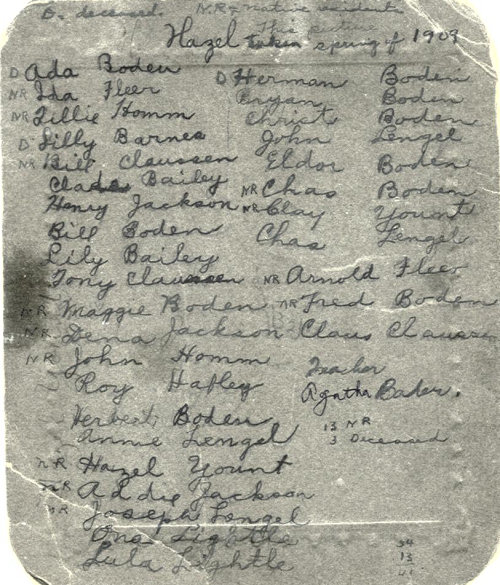 D. deceased. NR - native residents
This picture
Hazel taken spring of 1909
D Ada Boden
NR Ida Fleer
NR Tillie Homm
D Lilly Barnes
NR Bill Claussen
Clade Bailey
Henry Jackson
Bill Boden
Lily Bailey
Tony Claussen
NR Maggie Boden
NR Dena Jackson
NR John Homm
Roy Hafley
Herbert Boden
Annie Lengel
NR Hazel Yount
NR Addie Jackson
NR Joseph Lengel
Ona Lightle
Lula Lightle
D Herman Boden
Bryan Boden
Christ Boden
John Lengel
Eldor Boden
NR Chas Boden
NR Clay Yount
Chas Lengel
NR Arnold Fleer
NR Fred Boden
Claus Claussen
Teacher
Agatha Bader.
13 NR
3 Deceased
34
13